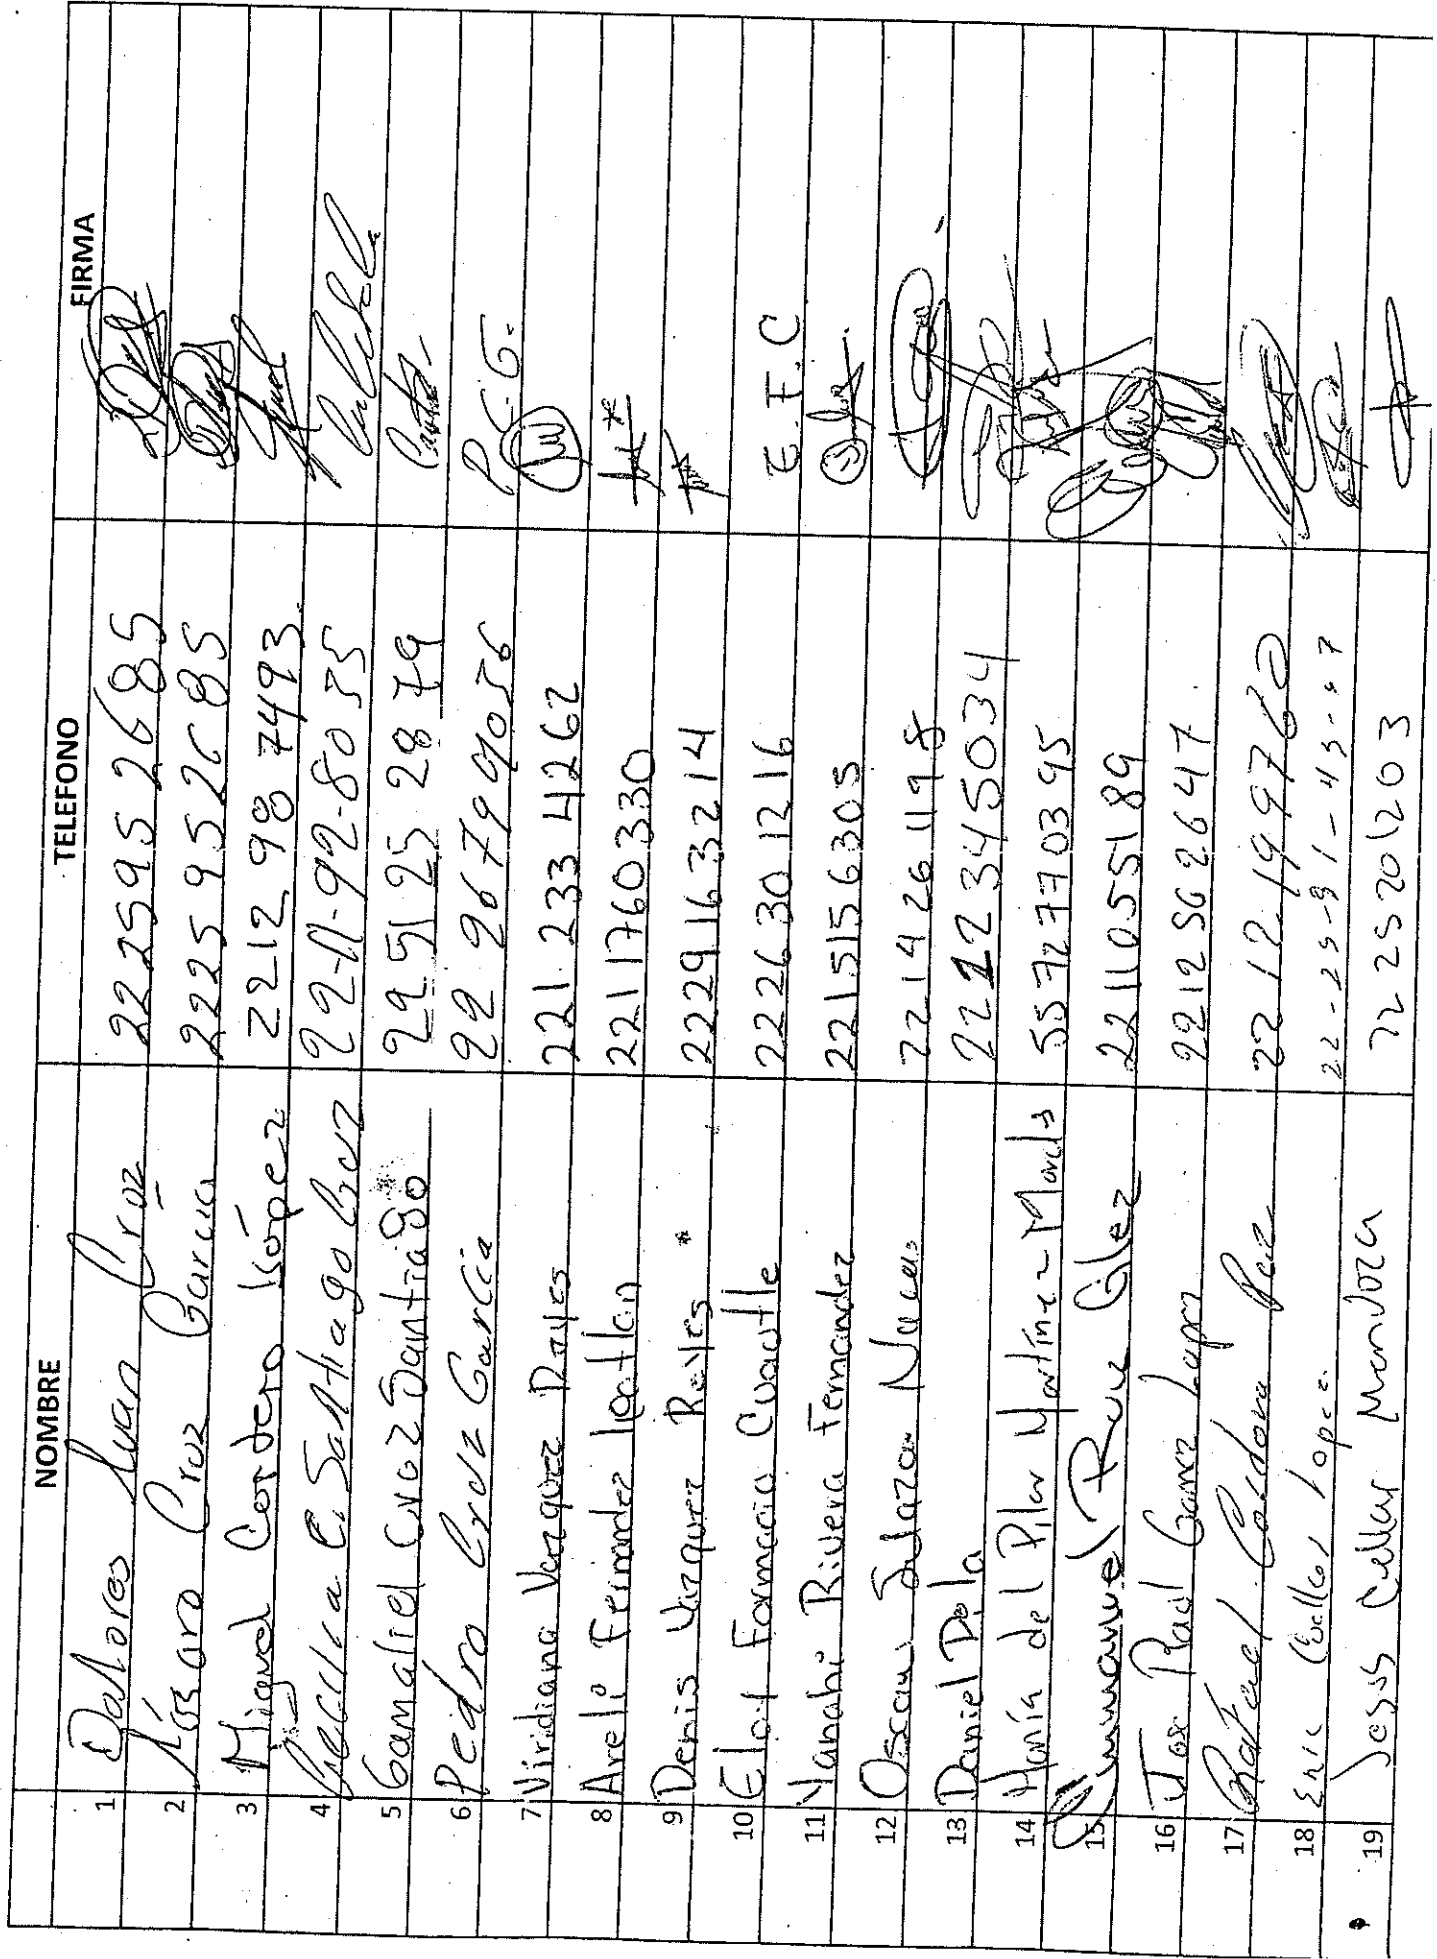 NOMBRE TELEFONO FIRMA
1 Dolores Juan Cruz 2225952685
2 Cruz Garcia 2225952685
3 Miguel Cordero López 2212987493
4 C. Santiago Cruz 22-11-92-80 35
5 Gamaliel Cruz Santiago 29 51 25 28 79
6 Pedro Cruz García P.C.G.
7 Viridiana Vazquez Reyes 221 233 4262
8 Areli Fernandez 2211760330
9 Denis Vazquez Reyes 2229163214
10 Eloy Formacio Cuautle 2226301216 E.F.C
11 Yanahi Rivera Fernandez 2215156305
12 Oscar Salazar 2214261198
13 Daniel 2212345034
14 María del Pilar Martínez Morales 5572770395
15 Emmanuel Ruiz Glez 2211055189
16 Jose Raul 2212562647
17 Rafael 22 12 199760
18 Eric Cuellar Lopez
19 Jesus Cuellar Mendoza 2225201203